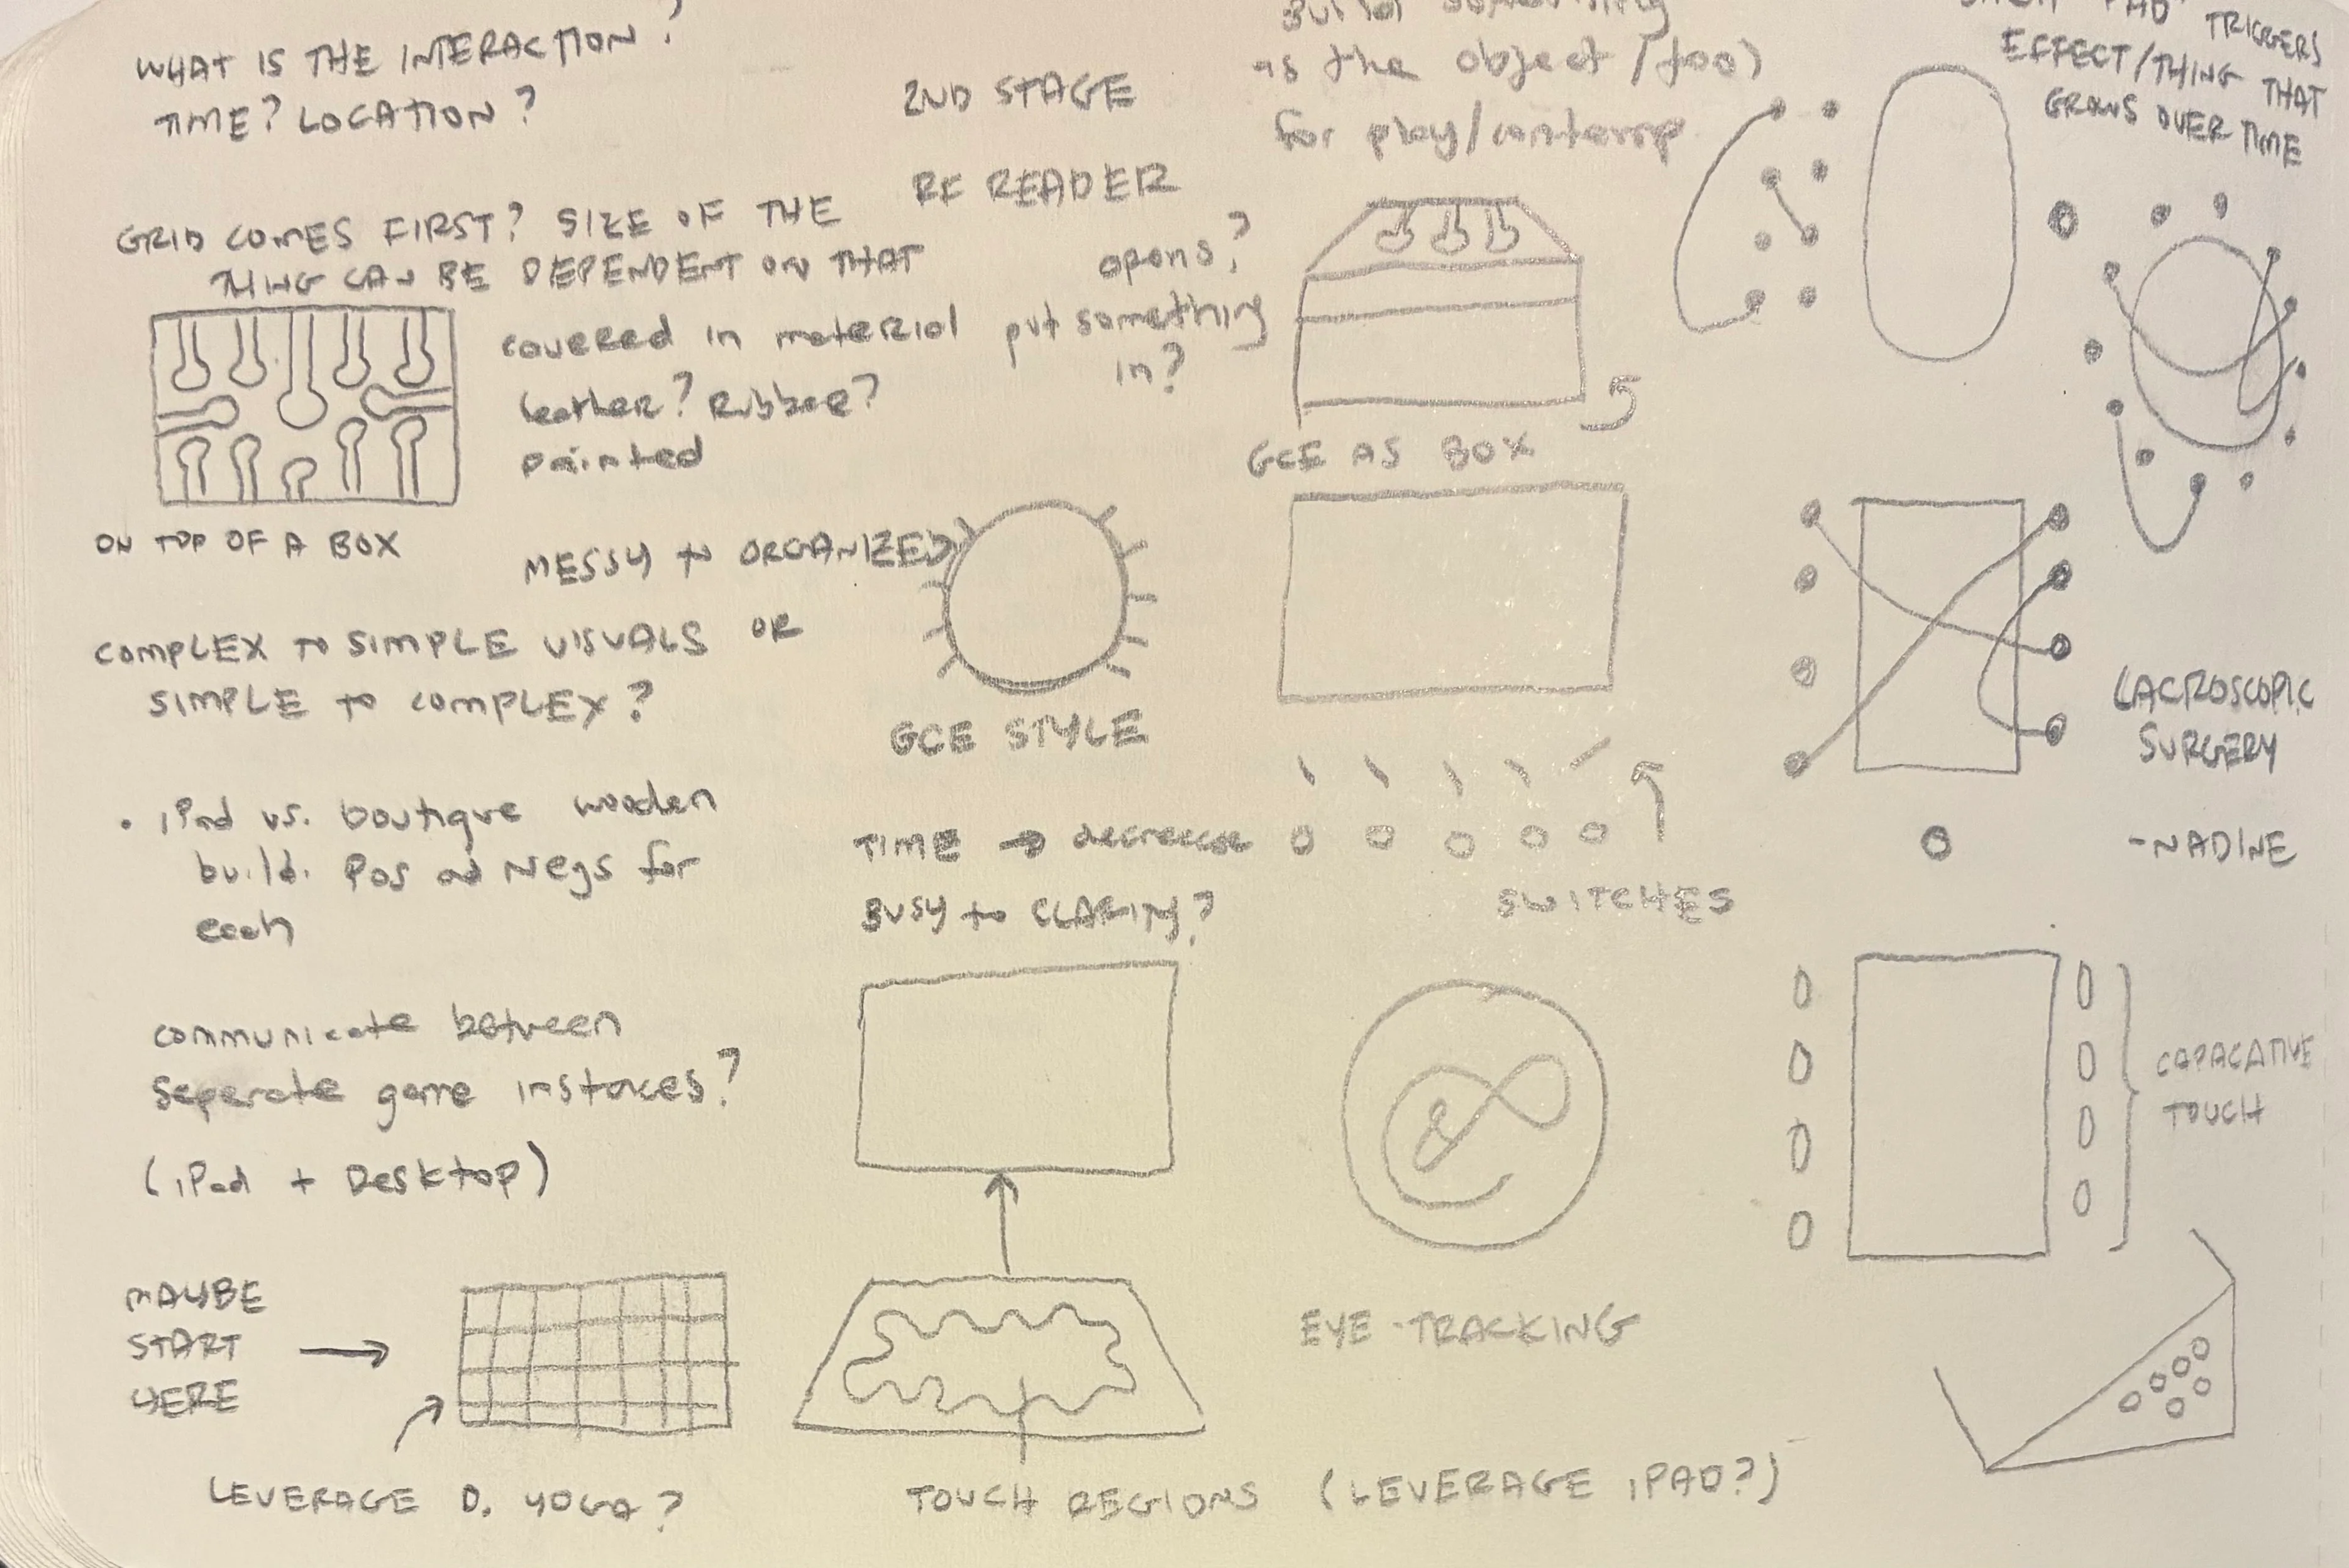 WHAT IS THE INTERACTION?
TIME? LOCATION?
GRID COMES FIRST? SIZE OF THE
THING CAN BE DEPENDENT ON THAT
covered in material
leather? Rubber?
painted
ON TOP OF A BOX
MESSY to ORGANIZED
COMPLEX TO SIMPLE VISUALS OR
SIMPLE to COMPLEX?
• iPad vs. boutique wooden
build. Pos and Negs for
each
communicate between
seperate game instances?
(iPad + Desktop)
MAYBE
START
HERE
LEVERAGE D. YOGA?
2ND STAGE
RF READER
opens?
put something
in?
GCE STYLE
TIME → decrease
BUSY to CLARITY?
TOUCH REGIONS (LEVERAGE iPAD?)
Build something
as the object / tool
for play/contemp
GCE AS BOX
SWITCHES
EYE-TRACKING
PAD TRIGGERS
EFFECT/THING THAT
GROWS OVER TIME
LACROSCOPIC
SURGERY
-NADINE
CAPACATIVE
TOUCH